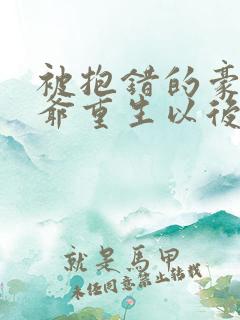 被抱錯的豪
爺重生以後
就是馬甲
未经同意禁止转载